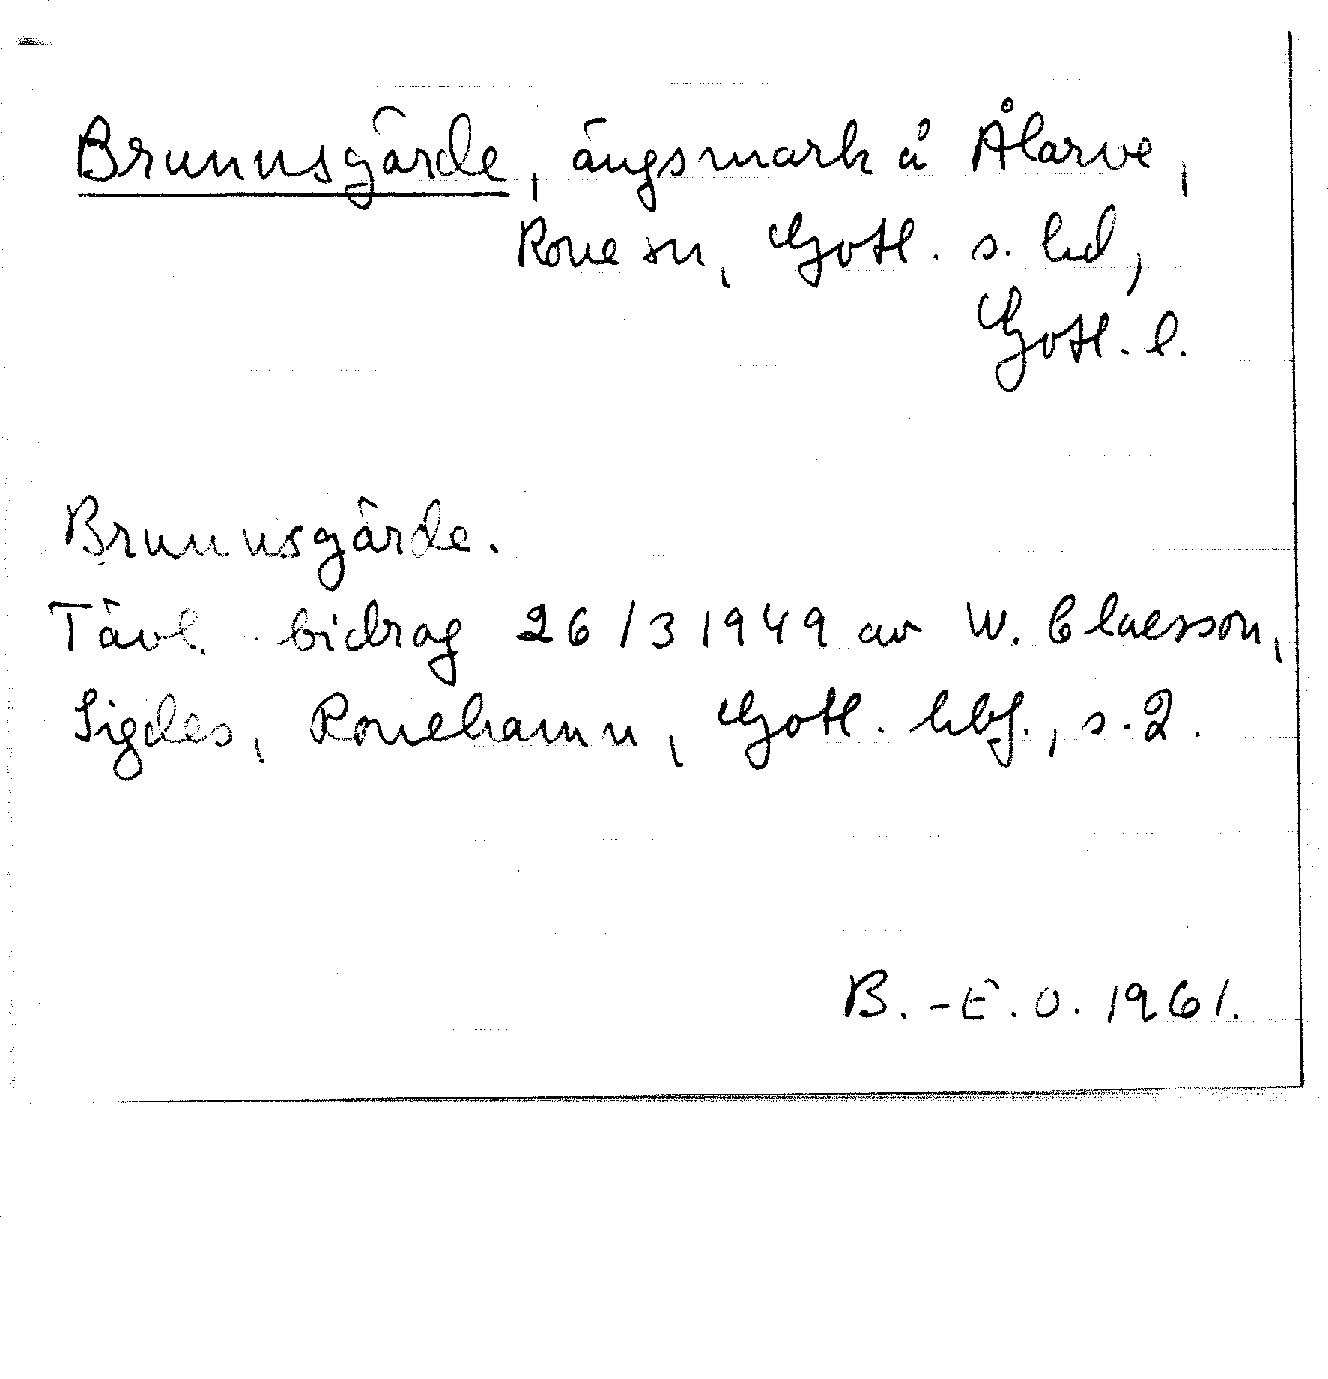 Brunnsgärde, ängsmark å Ålarve,
Rone sn, Gotl. s. hd,
Gotl. l.
Brunnsgärde.
Tävl. bidrag 26/3 1949 av W. Claesson,
Sigdes, Ronehamn, Gotl. hbf., s. 2.
B.-E. O. 1961.